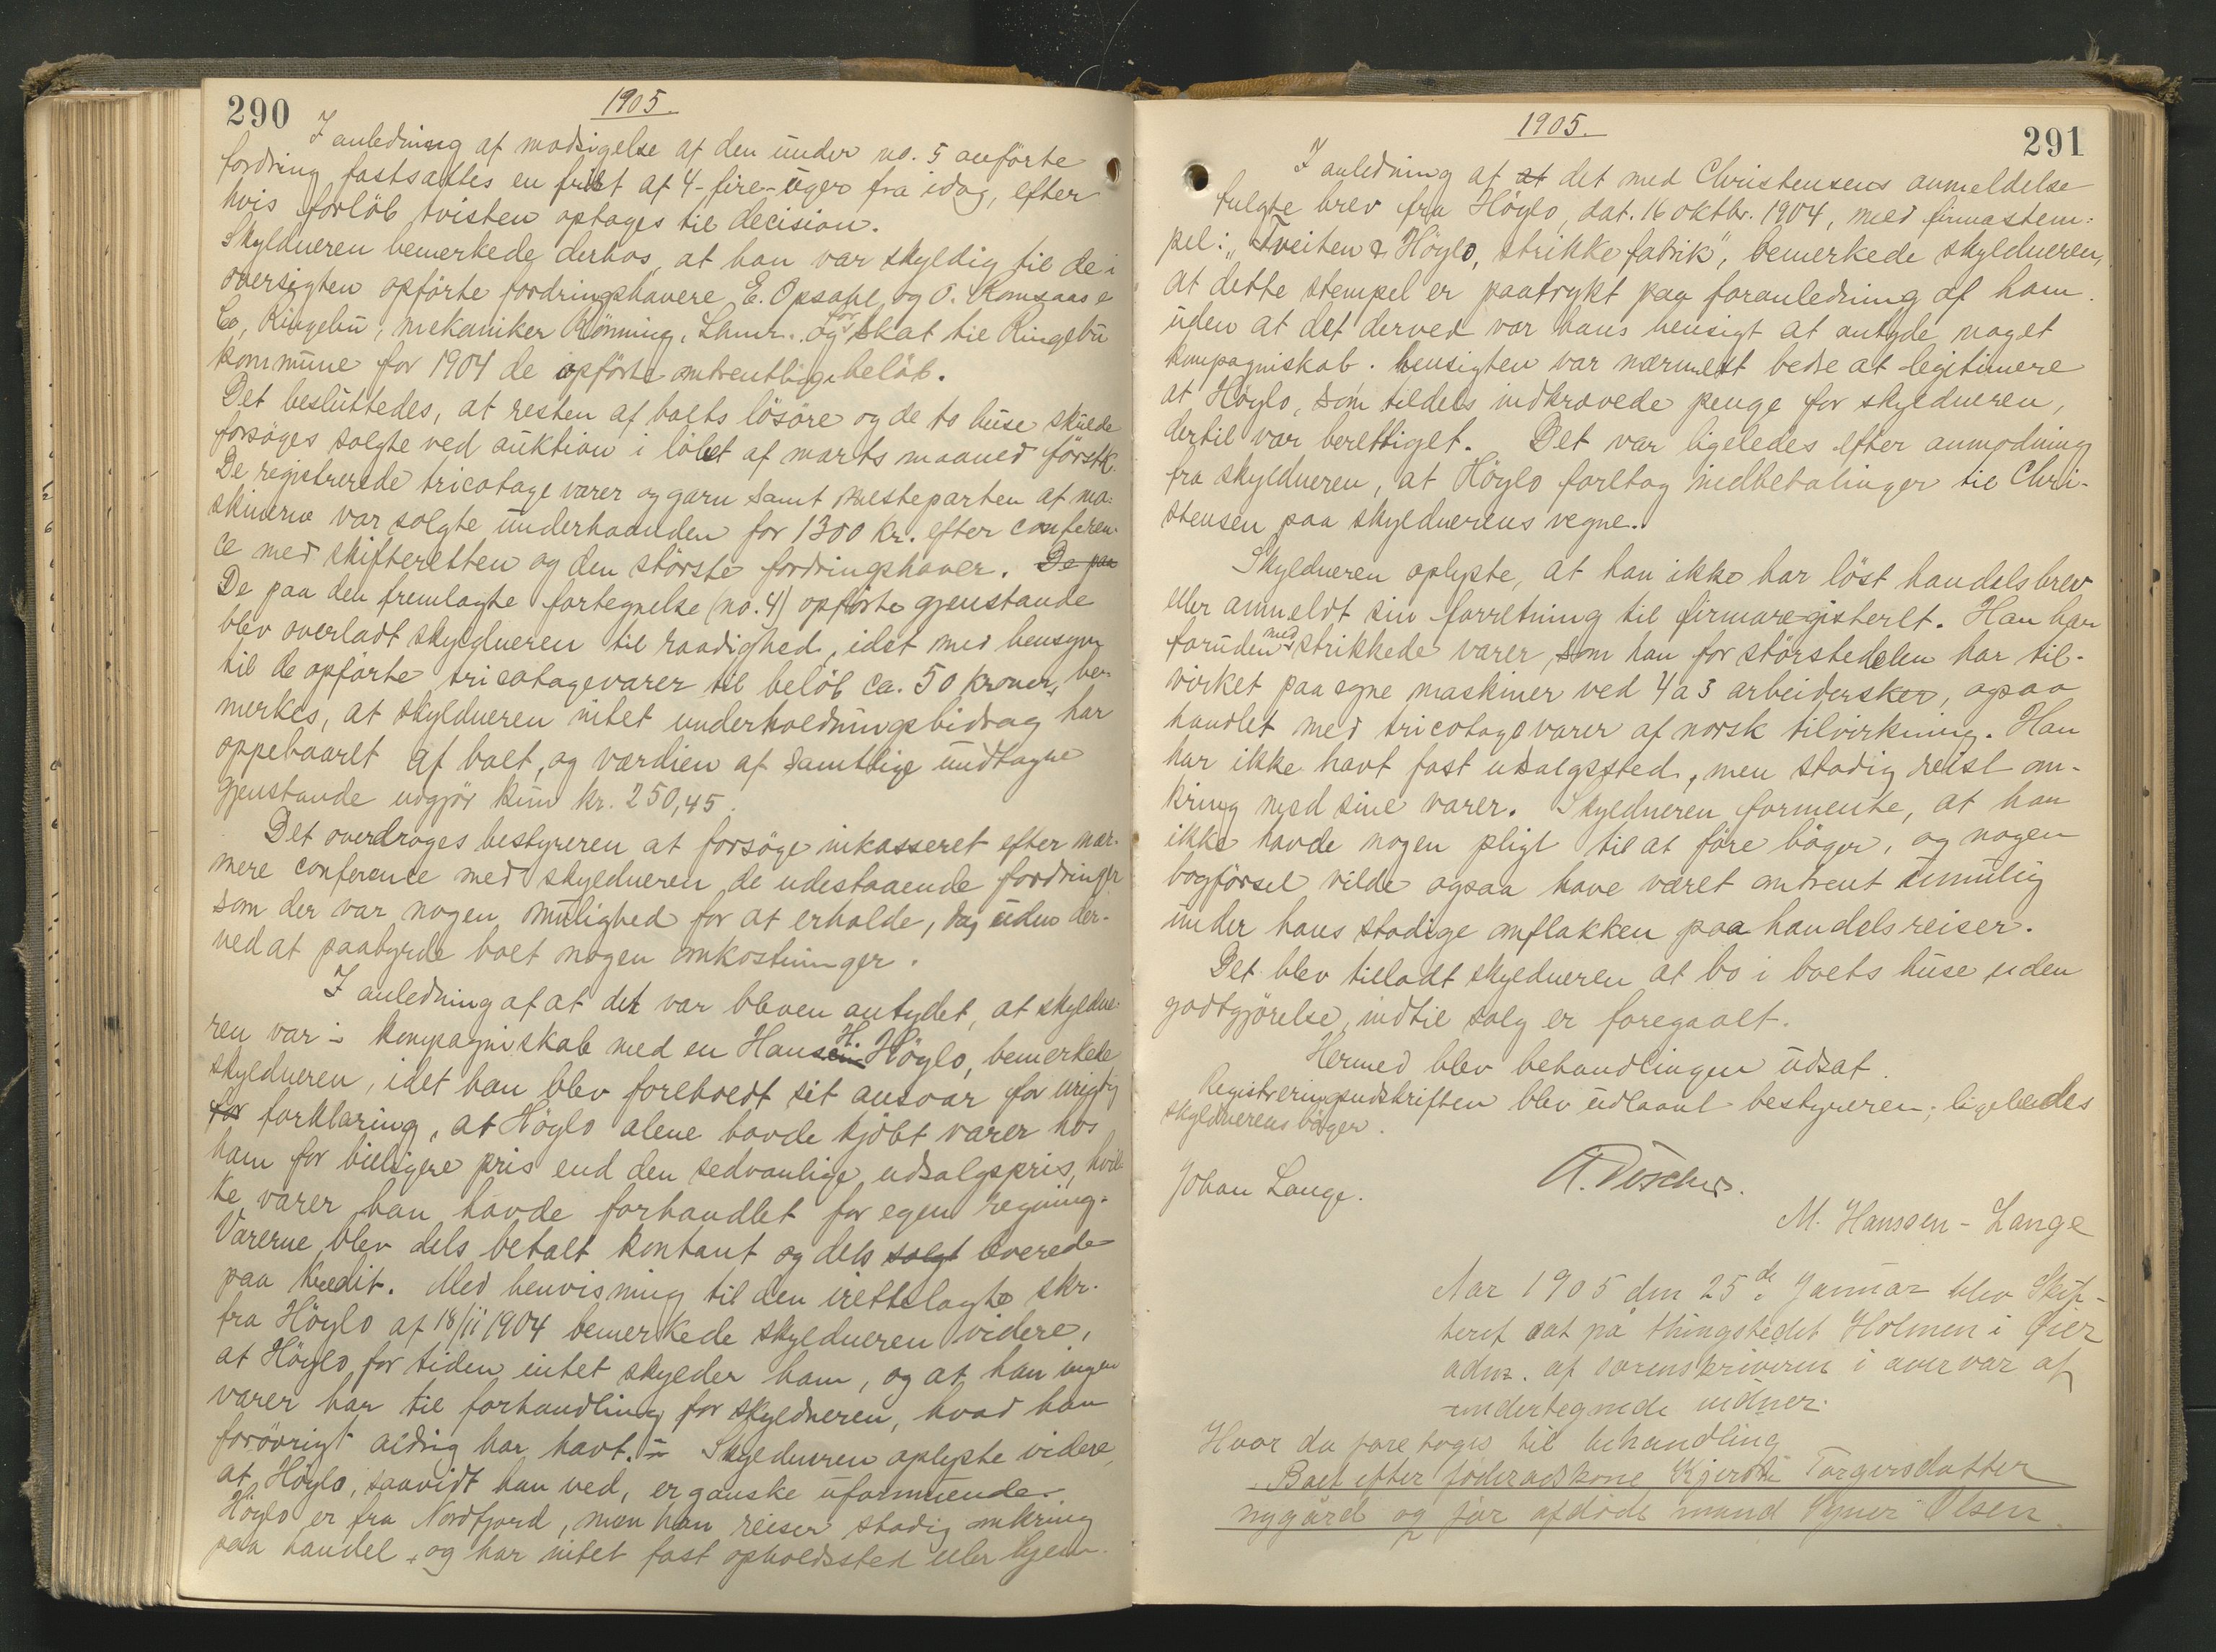 290
1905.
I anledning af modsigelse af den under no. 5 anförte
fordring fastsattes en frist af 4-fire-uger fra idag, efter
hvis forlöb tvisten optages til decision.
Skyldneren bemerkede derhos, at han var skyldig til de i
oversigten opförte fordringshavere E. Opsahl og O. Romsaas &
Co, Ringebu, mekaniker Rönning, Lhmr. og for skat til Ringebu
kommune for 1904 de opförte omtrentlige beløb.
Det besluttedes, at resten af boets lösöre og de to huse skulde
forsöges solgte ved auktion i löbet af marts maaned förstk.
De registrerede tricotagevarer og garn samt mesteparten af ma-
skinerne var solgte underhaanden for 1300 kr. efter conferen-
ce med skifteretten og den störste fordringshaver. De paa
De paa den fremlagte fortegnelse (no. 4) opförte gjenstande
blev overladt skyldneren til raadighed, idet med hensyn
til de opförte tricotagevarer til belöb ca. 50 kroner, be-
merkes, at skyldneren intet underholdningsbidrag har
oppebaaret af boet, og værdien af samtlige undtagne
gjenstande udgjör kun kr. 250,45.
Det overdroges bestyreren at forsöge inkasseret efter nær-
mere conference med skyldneren de udestaaende fordringer
som der var nogen mulighed for at erholde, dog uden der-
ved at paabyrde boet nogen omkostninger.
I anledning af at det var bleven antydet, at skyldne-
ren var i kompagniskab med en Hansen H. Höglo, bemerkede
skyldneren, idet han blev foreholdt sit ansvar for urigtig
for forklaring, at Höglo alene havde kjöbt varer hos
ham for billigere pris end den sedvanlige udsalgspris, hvil-
ke varer han havde forhandlet for egen regning.
Varerne blev dels betalt kontant og dels solgt leverede
paa kredit. Med henvisning til den irettelagte skr.
fra Höglo af 18/11 1904 bemerkede skyldneren videre,
at Höglo for tiden intet skylder ham, og at han ingen
varer har til forhandling for skyldneren, hvad han
forövrigt aldrig har havt. - Skyldneren oplyste videre,
at Höglo, saavidt han ved, er ganske uformuende.
Höglo er fra Nordfjord, men han reiser stadig omkring
paa handel, og har intet fast opholdssted eller hjem.
1905.
291
I anledning af at det med Christensens anmeldelse
fulgte brev fra Höglo, dat. 16 oktbr. 1904, med firmastem-
pel: "Tveiten & Höglo, strikkefabrik", bemerkede skyldneren,
at dette stempel er paatrykt paa foranledning af ham
uden at det derved var hans hensigt at antyde noget
kompagniskab. Hensigten var nærmest bedre at legitimere
at Höglo, som tildels indkrævede penge for skyldneren,
dertil var berettiget. Det var ligeledes efter anmodning
fra skyldneren, at Höglo foretog indbetalinger til Chri-
stensen paa skyldnerens vegne.
Skyldneren oplyste, at han ikke har löst handelsbrev
eller anmeldt sin forretning til firmaregisteret. Han har
foruden med strikkede varer, som han for störstedelen har til-
virket paa egne maskiner ved 4 a 3 arbeidersker, ogsaa
handlet med tricotagevarer af norsk tilvirkning. Han
har ikke havt fast udsalgssted, men stadig reist om-
kring med sine varer. Skyldneren formente, at han
ikke havde nogen pligt til at före böger, og nogen
bogförsel vilde ogsaa have været omtrent umulig
under hans stadige omflakken paa handelsreiser.
Det blev tilladt skyldneren at bo i boets huse uden
godtgjörelse, indtil salg er foregaaet.
Hermed blev behandlingen udsat.
Registreringsudskriften blev udlaant bestyreren; ligeledes
skyldnerens böger.
Johan Lange.
M. Hanssen-Lange
Aar 1905 den 25de Januar blev Skif-
teret sat på thingstedet Holmen i Øier
adm. af sorenskriveren i overvær af
undertegnede vidner.
Hvor da foretoges til behandling
Boet efter föderaadskone Kjersti Torgersdatter
nygård og før afdöde mand Ole Olsen